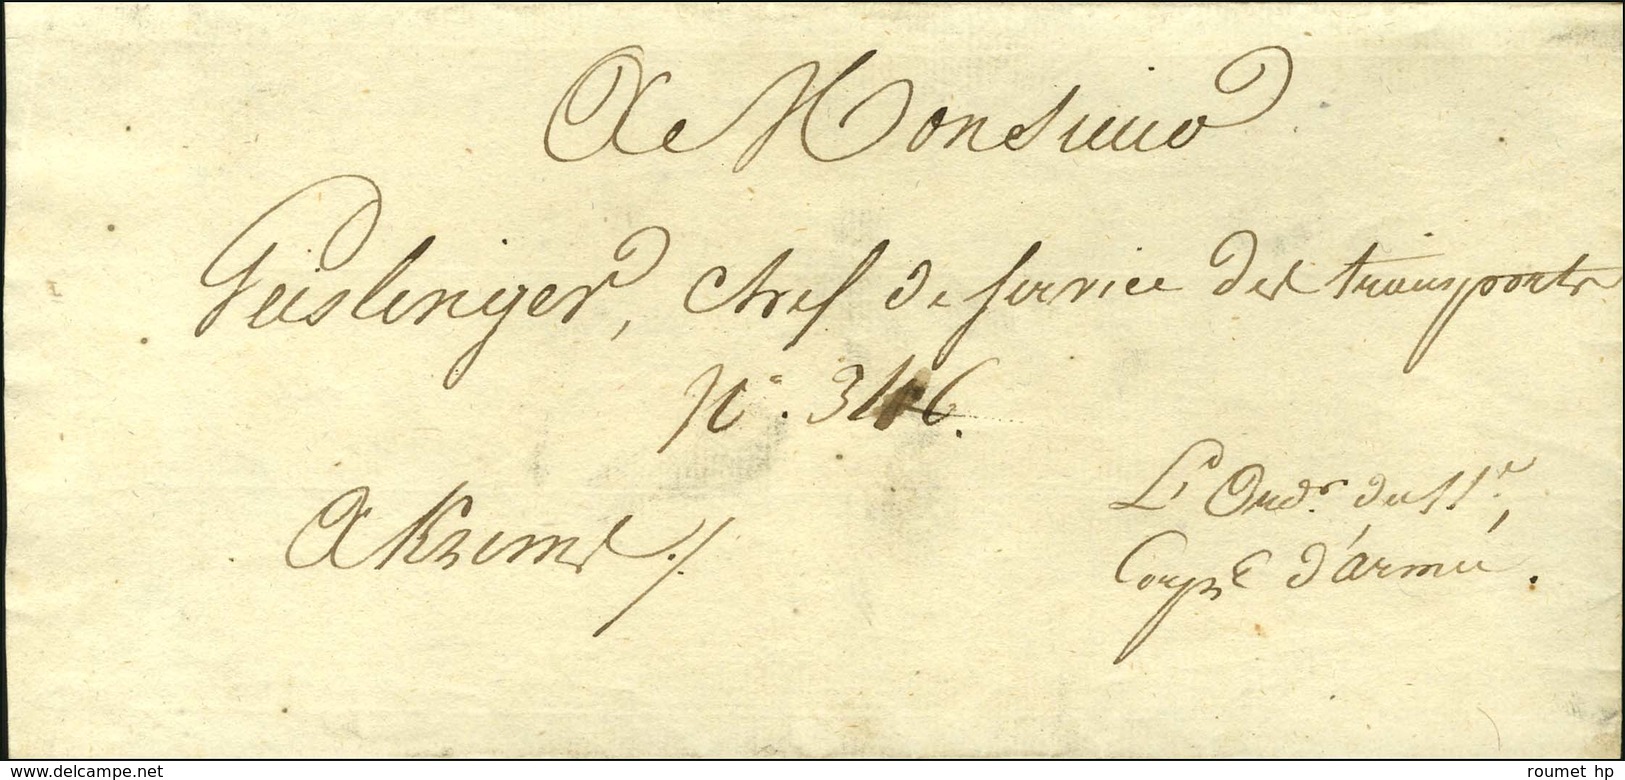 A Monsieur
Geislinger, chef de service des transports
N°. 346.
L'Ordr. du 11e,
A Krems ./.
Corps d'armée.
delcampe.net
roumet_hp